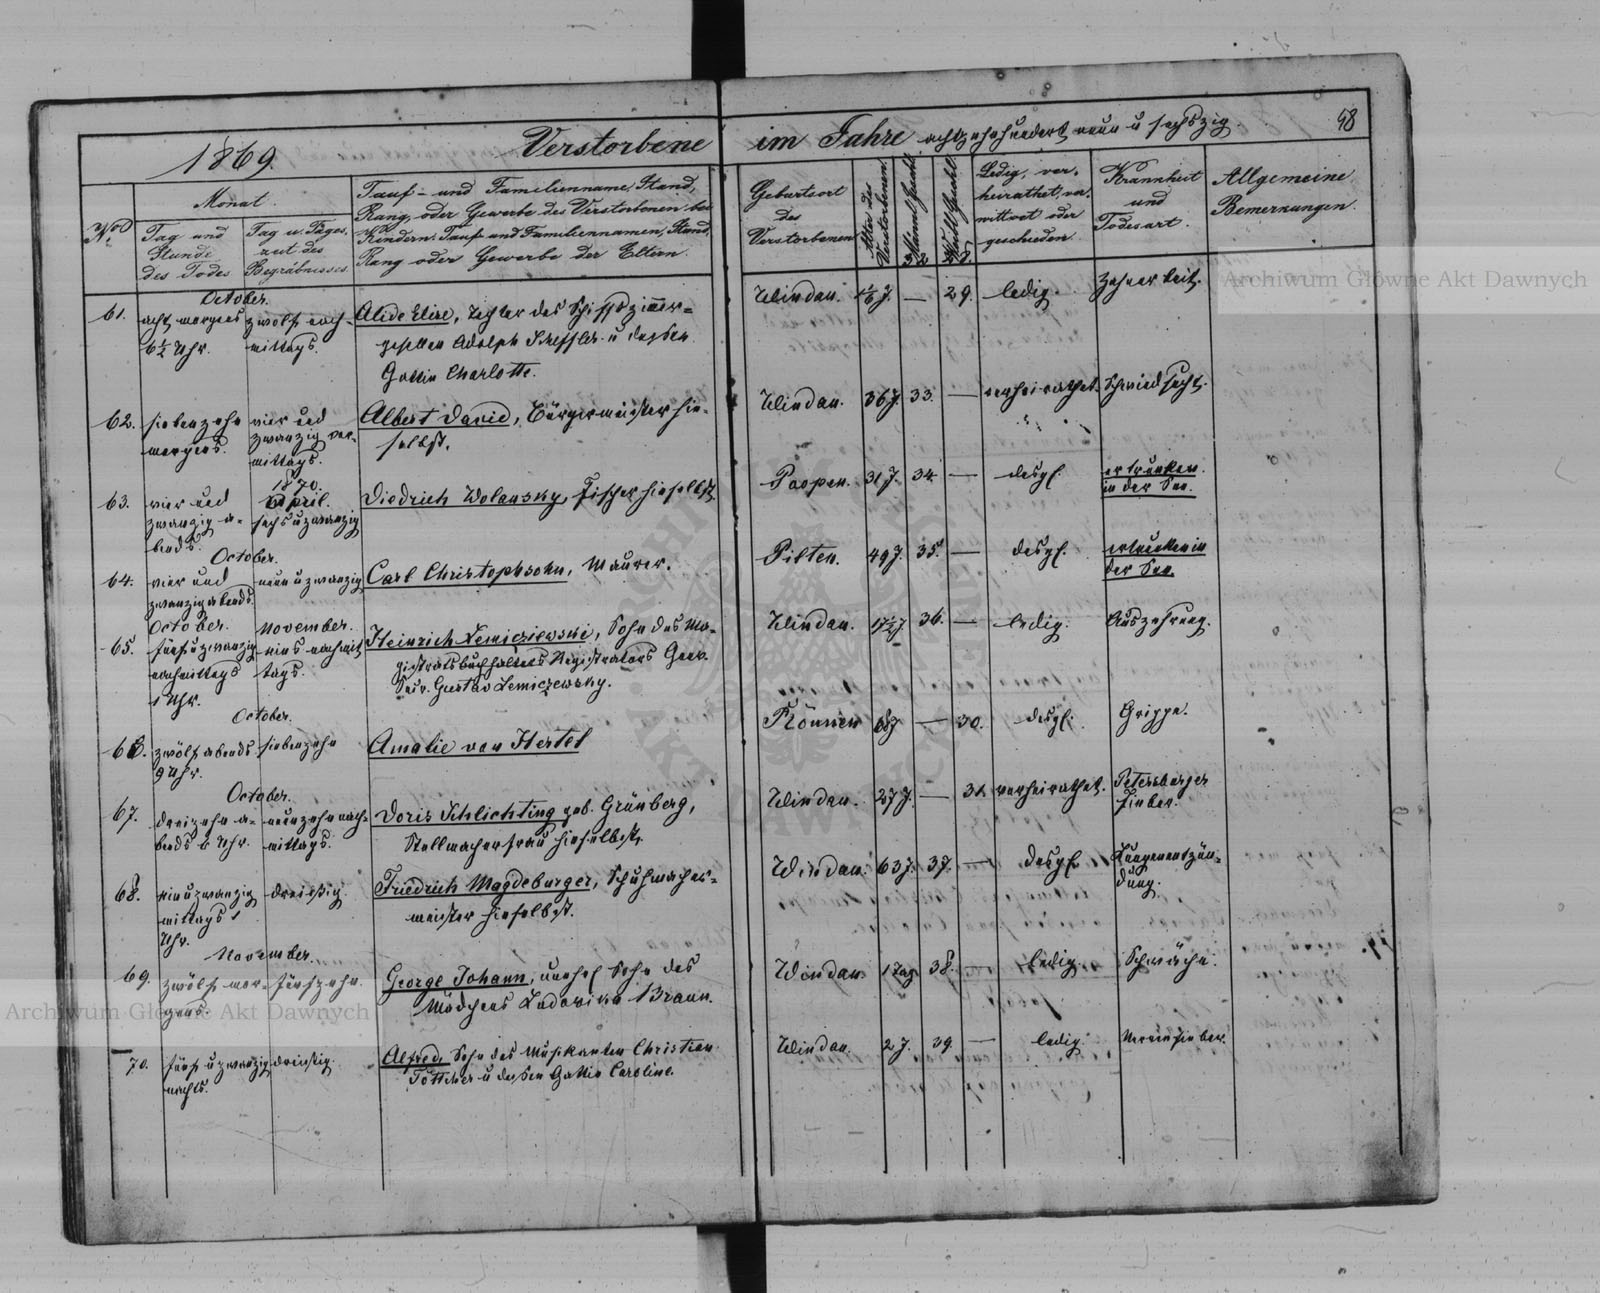 1869.
Verstorbene im Jahre achtzehnhundert neun u sechszig.
58
No.
Monat.
Tag und
Stunde
des Todes
Tag u. Tages-
zeit des
Begräbnisses
Tauf- und Familienname, Stand,
Rang, oder Gewerbe des Verstorbenen bei
Kindern: Tauf- und Familiennamen, Stand,
Rang oder Gewerbe der Eltern.
Geburtsort
des
Verstorbenen
Alter des
Verstorbenen
Männl. Geschl.
Weibl. Geschl.
Ledig, ver-
heirathet, ver-
wittwet oder
geschieden.
Krannkeit
und
Todesart.
Allgemeine
Bemerkungen.
October.
61.
acht morgens
6½ Uhr.
zwölf nach-
mittags.
Alide Elise, Tochter des Schiffszimmer-
gesellen Adolph Scheffler u dessen
Gattin Charlotte.
Windau.
—
29.
ledig.
62.
siebenzehn
morgens.
vier und
zwanzig vor-
mittags.
Albert David, Bürgermeister hie-
selbst.
Windau.
36 J.
33.
—
verheirathet.
Schwindsucht.
63.
vier und
zwanzig a-
bends.
1870.
April.
sechs u zwanzig
Diedrich Wolansky, Fischer hieselbst.
Paopen.
31 J.
34.
—
desgl.
ertrunken
in der See.
October.
64.
vier und
zwanzig abends.
neun u zwanzig
Carl Christophsohn, Maurer.
Pilten.
49 J.
35.
—
desgl.
ertrunken in
der See.
October.
65.
fünf u zwanzig
nachmittags
1 Uhr.
November.
eins nachmit-
tags.
Heinrich Lemiczewski, Sohn des Ma-
gistratsbuchhalters Registrators Gouv.
Secr. Gustav Lemiczewsky.
Windau.
36.
—
ledig.
Auszehrung.
October.
66.
zwölf abends
9 Uhr.
siebenzehn
Amalie von Hertel
Rönnen
—
30.
desgl.
Grippe.
October.
67.
dreizehn a-
bends 6 Uhr.
neunzehn nach-
mittags.
Doris Schlichting geb. Grünberg,
Stellmachersfrau hieselbst.
Windau.
27 J.
—
31.
verheirathet.
Petersburger
Fieber.
68.
ein u zwanzig
mittags 1
Uhr.
dreissig.
Friedrich Magdeburger, Schuhmacher-
meister hieselbst.
Windau.
63 J.
37.
—
desgl.
Lungenentzün-
dung.
November.
69.
zwölf mor-
gens.
fünfzehn.
George Johann, unehel Sohn des
Mädchens Ludowika Braun.
Windau
1 Tag.
38.
—
ledig.
Schwäche.
70.
fünf u zwanzig
nachts.
dreissig.
Alfred, Sohn des Musikanten Christian
Töttcher u dessen Gattin Caroline.
Windau.
2 J.
39.
—
ledig.
Nervenfieber.
Archiwum Główne Akt Dawnych
Archiwum Główne Akt Dawnych